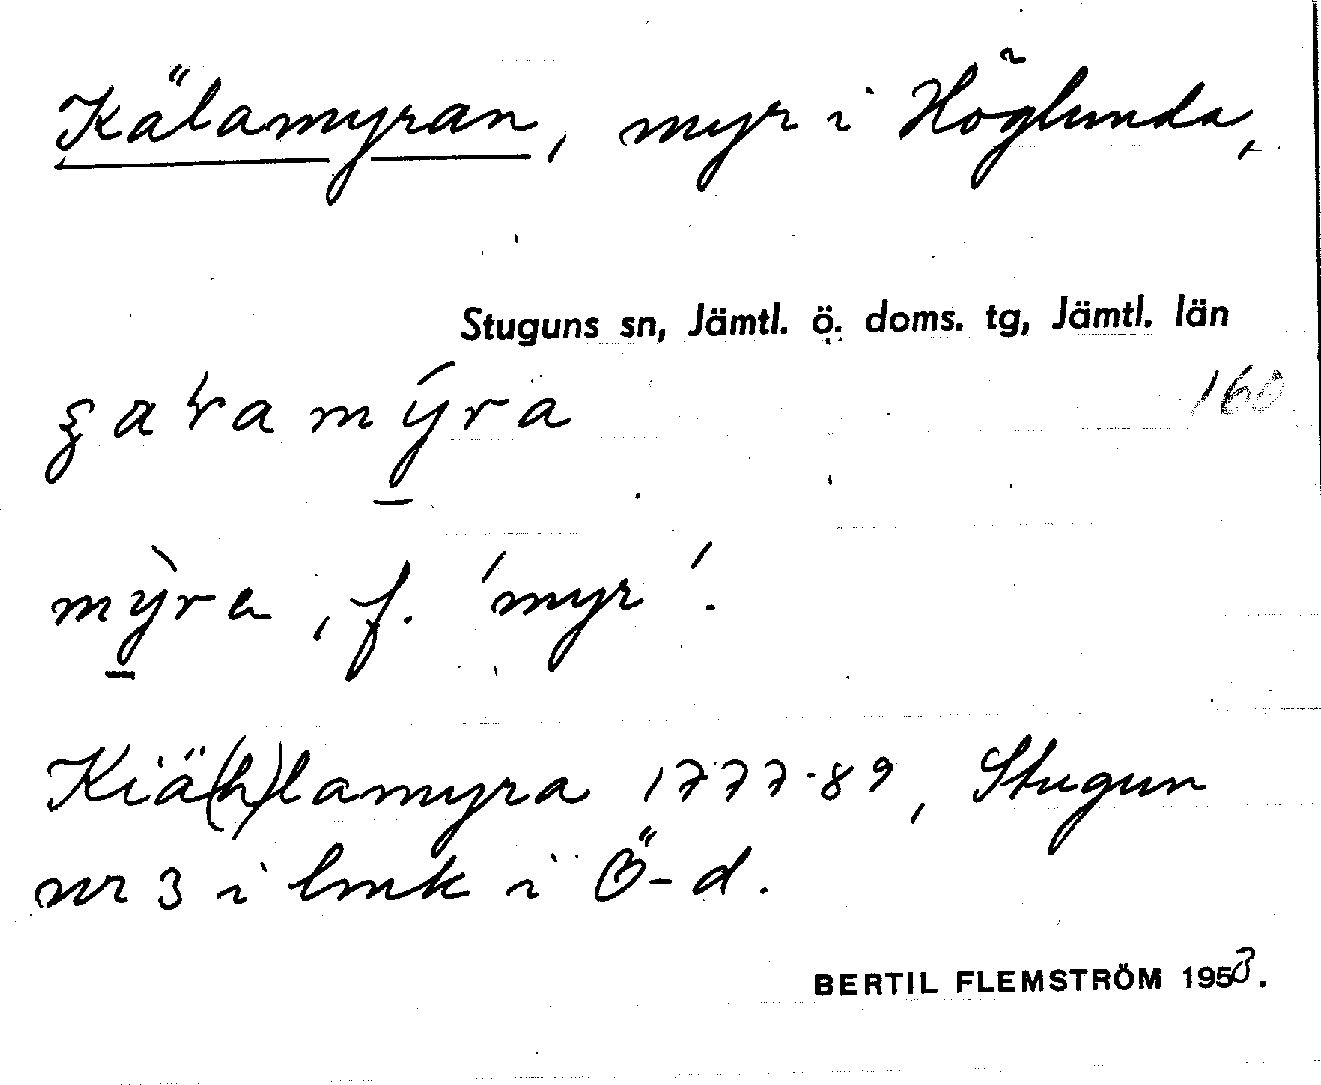 Kälamyran, myr i Höglunda,
Stuguns sn, Jämtl. ö. doms. tg, Jämtl. län
160
mỳra, f. 'myr'.
Kiä(h)lamyra 1777-89, Stugun
nr 3 i lmk i Ö-d.
BERTIL FLEMSTRÖM 1953.